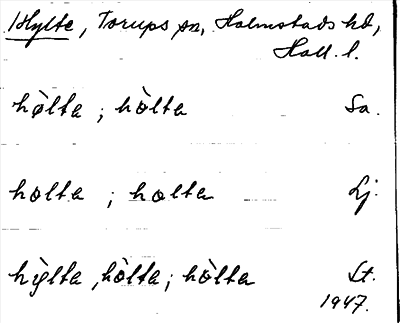 Hylte, Torups sn, Halmstads hd,
Hall. l.
hø̀lta ; hòlta Sa.
holta ; holta Lj.
hỳlta, hòlta ; hòlta Lt.
1947.